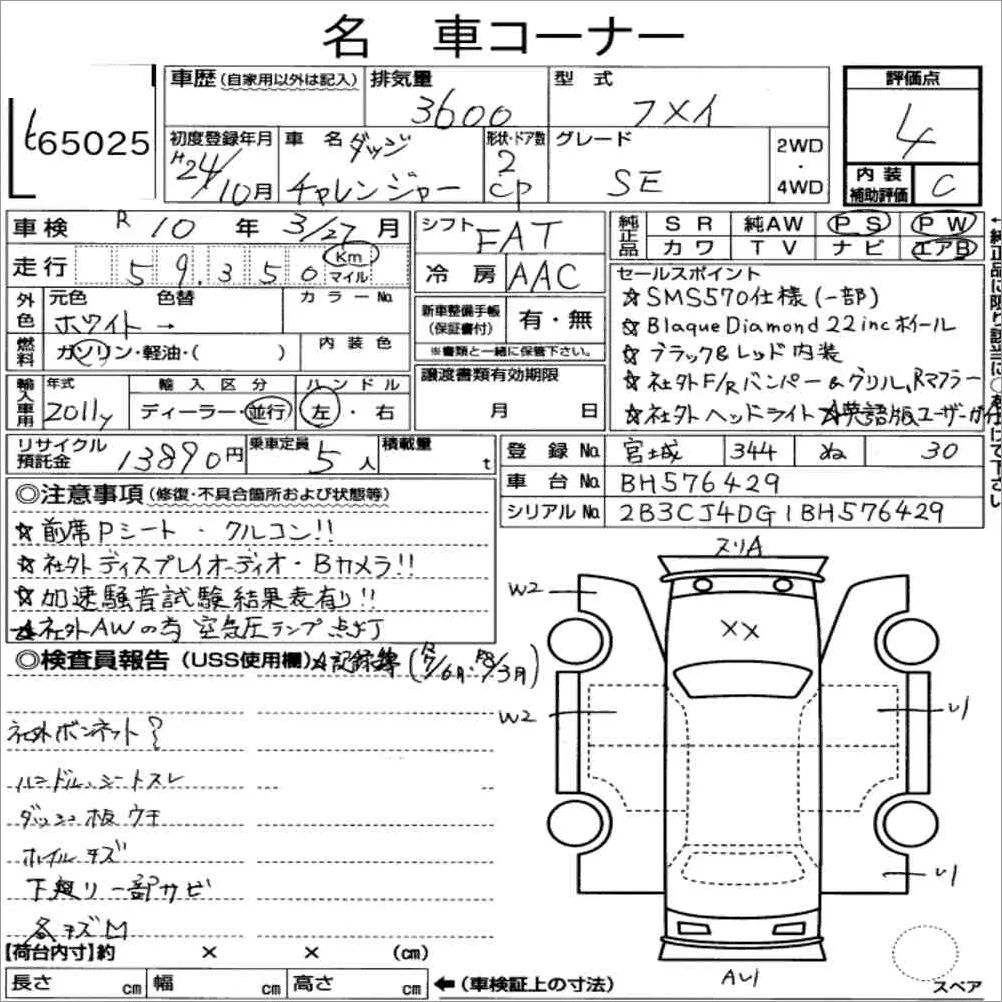 名 車コーナー
t65025
車歴(自家用以外は記入)
排気量
3600
型 式
フメイ
評価点
4
初度登録年月
H24/10月
車 名
ダッジ
チャレンジャー
形状・ドア数
2
CP
グレード
SE
2WD
・
4WD
内 装
補助評価
C
車検 R 10 年 3/27 月
走行 59,350 Km マイル
シフト FAT
冷 房 AAC
純正品
S R 純AW P S P W
カ ワ T V ナ ビ エアB
←純正品に限り該当に○を付けて下さい
外色
元色 色替 カ ラ ー No.
ホワイト →
燃料
ガソリン・軽油・( )
内 装 色
新車整備手帳
(保証書付)
有・無
※書類と一緒に保管下さい。
セールスポイント
☆SMS570仕様(一部)
☆Blaque Diamond 22incホイール
☆ブラック&レッド内装
☆社外F/Rバンパー&グリル、Rマフラー
☆社外ヘッドライト☆英語版ユーザーガイド
輸入車用
年式
2011y
輸 入 区 分
ディーラー・並行
ハ ン ド ル
左・右
譲渡書類有効期限
月 日
リサイクル
預託金
13890円
乗車定員
5人
積載量
t
登 録 No. 宮城 344 ぬ 30
車 台 No. BH576429
シリアルNo. 2B3CJ4DG1BH576429
◎注意事項(修復・不具合箇所および状態等)
☆前席Pシート・クルコン!!
☆社外ディスプレイオーディオ・Bカメラ!!
☆加速騒音試験結果表有り!!
☆社外AWの為 空気圧ランプ点灯
◎検査員報告(USS使用欄)☆記録簿(R7/6月・R8/3月)
社外ボンネット?
ハンドル、シートスレ
ダッシュ板ウキ
ホイルキズ
下廻り一部サビ
各キズ凹
ヌリA
W2
XX
W2
レ1
レ1
Aレ1
スペア
【荷台内寸】約 × × (cm)
長さ cm 幅 cm 高さ cm ←(車検証上の寸法)